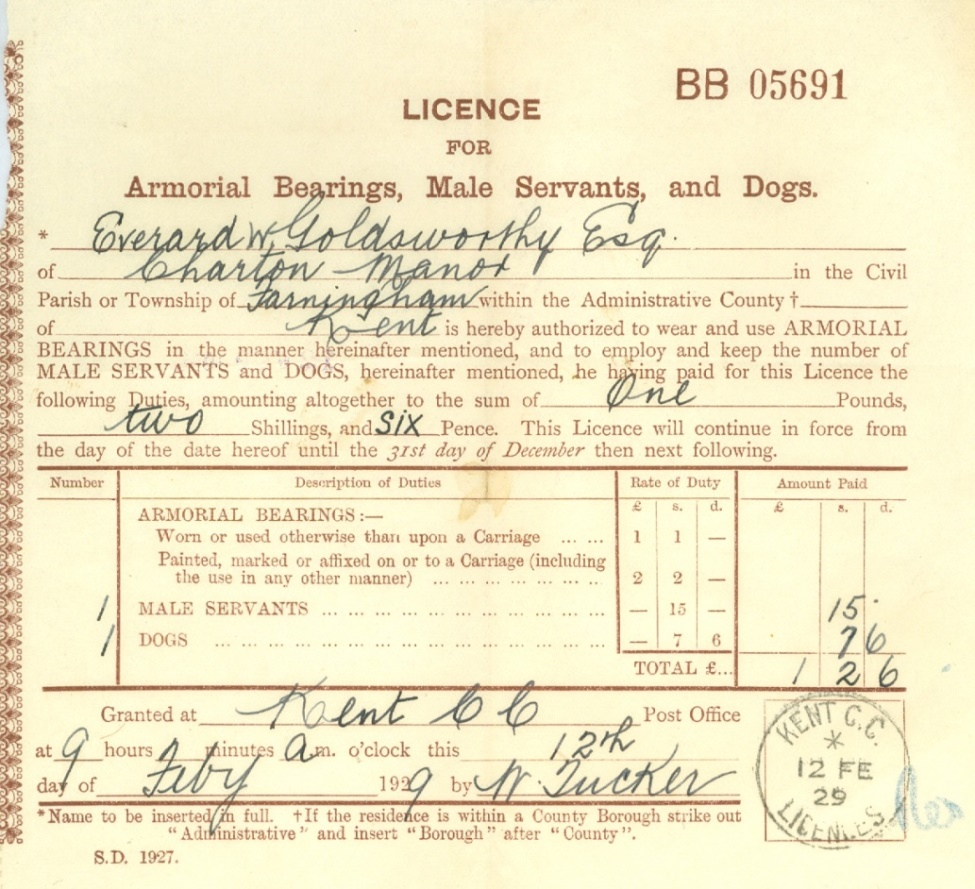 BB 05691
LICENCE
FOR
Armorial Bearings, Male Servants, and Dogs.
* Everard W. Goldsworthy Esq.
of Charton Manor in the Civil
Parish or Township of Farningham within the Administrative County †
of Kent is hereby authorized to wear and use ARMORIAL
BEARINGS in the manner hereinafter mentioned, and to employ and keep the number of
MALE SERVANTS and DOGS, hereinafter mentioned, he having paid for this Licence the
following Duties, amounting altogether to the sum of One Pounds,
two Shillings, and SIX Pence. This Licence will continue in force from
the day of the date hereof until the 31st day of December then next following.
Number Description of Duties Rate of Duty Amount Paid
£ s. d. £ s. d.
ARMORIAL BEARINGS :—
Worn or used otherwise than upon a Carriage ... ... 1 1 —
Painted, marked or affixed on or to a Carriage (including
the use in any other manner) ... ... ... ... ... ... ... 2 2 —
1 MALE SERVANTS ... ... ... ... ... ... ... ... ... ... — 15 — 15
1 DOGS ... ... ... ... ... ... ... ... ... ... ... ... — 7 6 7 6
TOTAL £... 1 2 6
Granted at Kent C C Post Office
at 9 hours minutes a.m. o'clock this 12th
day of Feby 1929 by W. Tucker
KENT C.C.
*
12 FE
29
LICENCES
* Name to be inserted in full. † If the residence is within a County Borough strike out
"Administrative" and insert "Borough" after "County".
S.D. 1927.